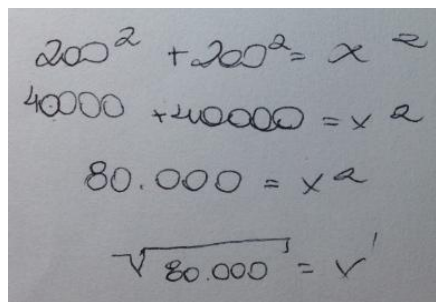 200² + 200² = x²
40000 + 40000 = x²
80.000 = x²
√80.000 = √